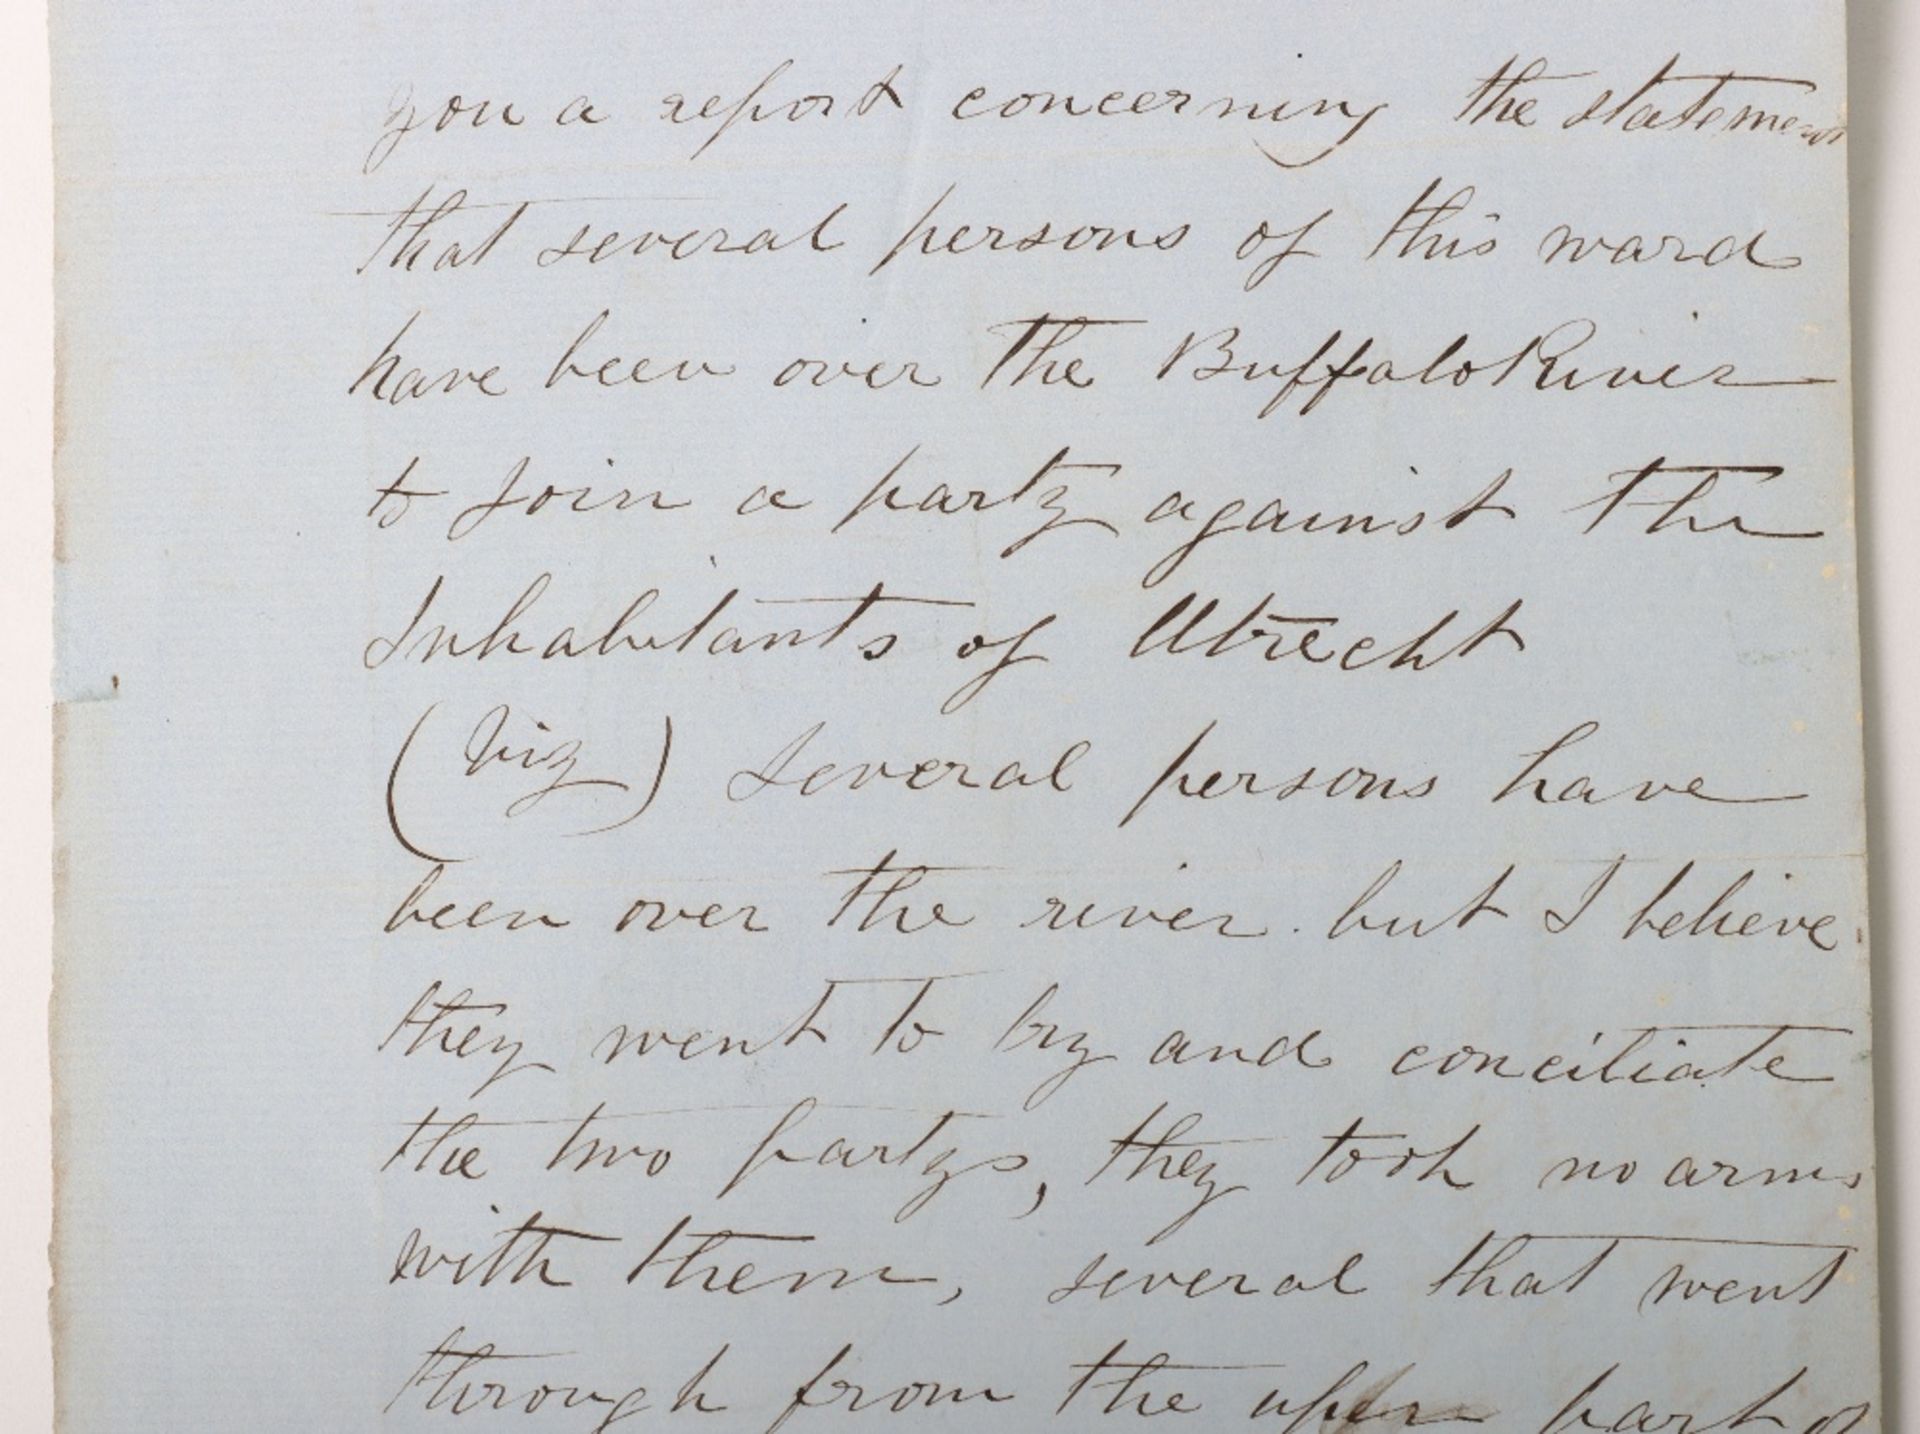 you a report concerning the statement
that several persons of this ward
have been over the Buffalo River
to join a party against the
Inhabitants of Utrecht
(Viz) Several persons have
been over the river. but I believe
they went to try and conciliate
the two partys, they took no arms
with them, several that went
through from the upper part of